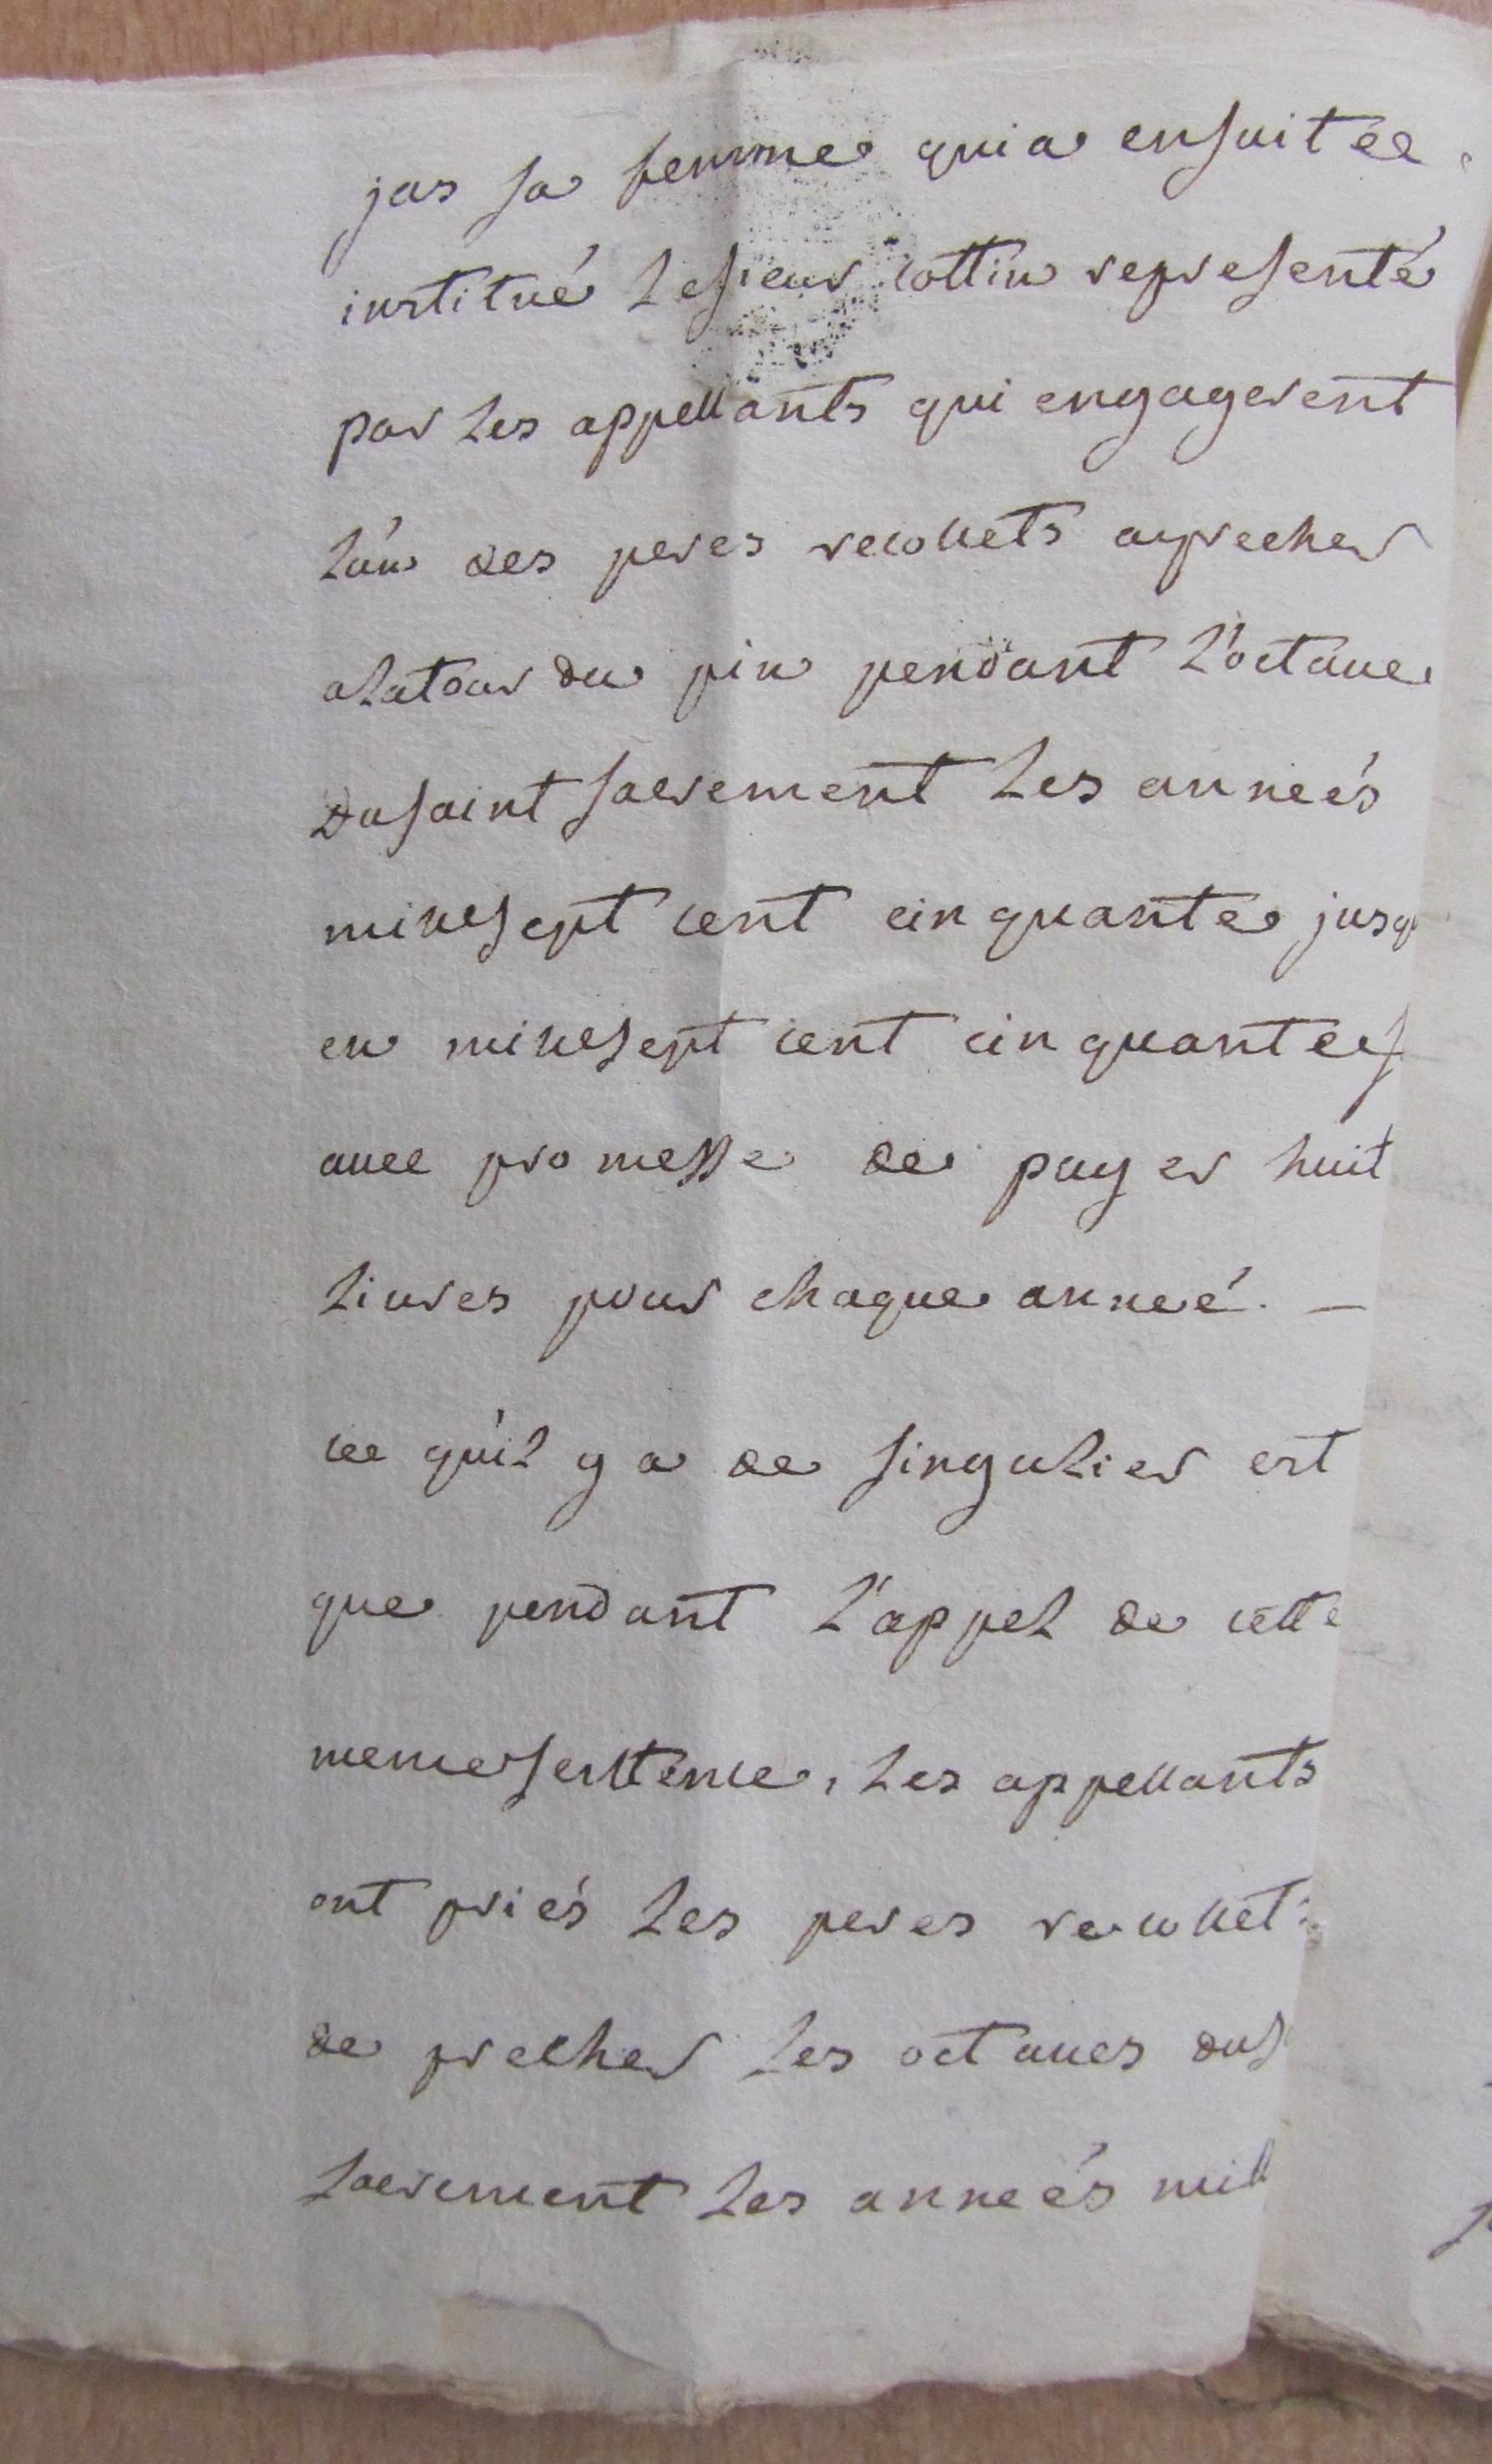 jas sa femme qui a ensuitée
institué lesieur cottin representé
par les appellants qui engagerent
l'un des peres recollets aprecher
alatour du pin pendant l'octave
dusaint sacrement les anneés
millesept cent cinquante jusqu
en millesept cent cinquantes
avec promesse de payer huit
livres pour chaque anneé. —
ce qu'il y a de singulier est
que pendant l'appel de cette
memesentence, les appellants
ont priés les peres recollets
de precher les octaves dus
sacrement les anneés mill